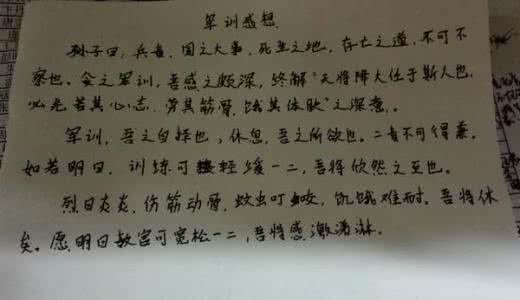 军训感想
孙子曰,兵者,国之大事,死生之地,存亡之道,不可不
察也。今之军训,吾感之颇深,终解“天将降大任于斯人也,
必先苦其心志,劳其筋骨,饿其体肤”之深意。
军训,吾之自择也,休息,吾之所欲也。二者不可得兼。
如若明日,训练可轻缓一二,吾将欣然之至也。
烈日炎炎,伤筋动骨,蚊虫叮咬,饥饿难耐。吾将休
矣。愿明日教官可宽松一二,吾将感激涕淋。